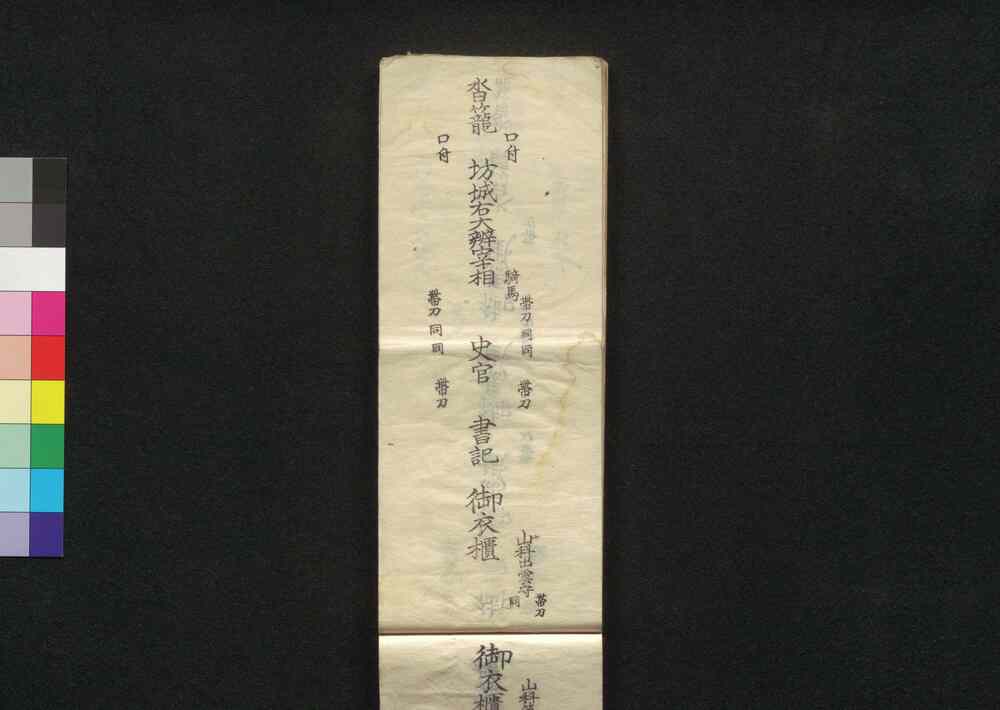 沓籠
口付
口付
坊城右大辨宰相
騎馬
帯刀 同 同
帯刀 同 同
史官
帯刀
帯刀
書記
御衣櫃
山科出雲守
同
帯刀
御衣櫃
山科